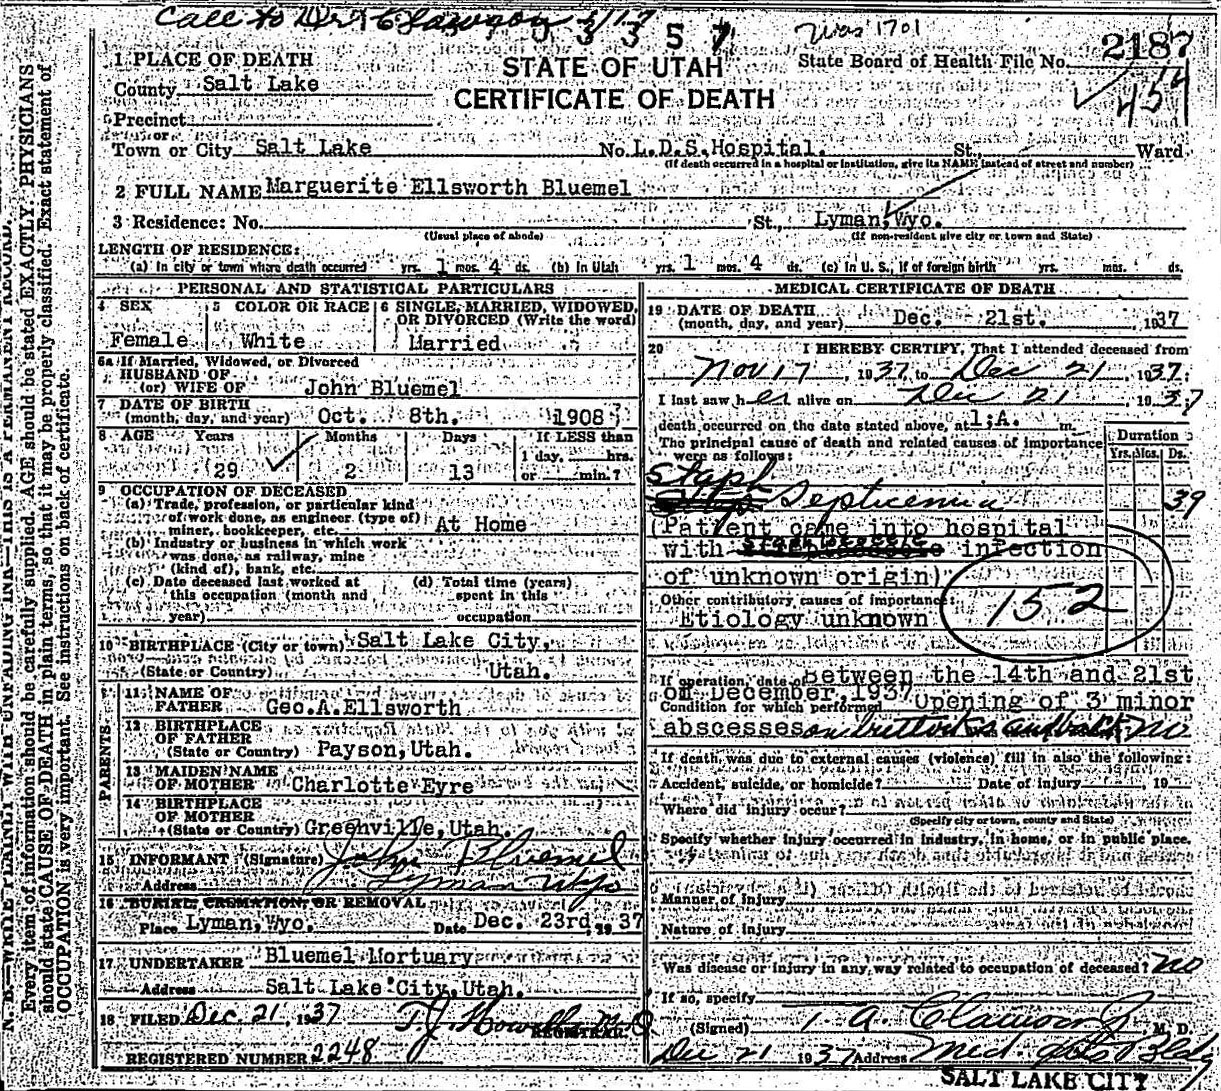 Call to Dr. T. Clawson 3/17
3 3 5 7 Was 1701
2187
1 PLACE OF DEATH STATE OF UTAH State Board of Health File No.
County Salt Lake CERTIFICATE OF DEATH
Precinct
or
Town or City Salt Lake No. L.D.S.Hospital. St., Ward
(If death occurred in a hospital or institution, give its NAME instead of street and number)
2 FULL NAME Marguerite Ellsworth Bluemel
3 Residence: No. St., Lyman, Wyo.
(Usual place of abode) (If non-resident give city or town and State)
LENGTH OF RESIDENCE:
(a) In city or town where death occurred yrs. 1 mos. 4 ds. (b) In Utah yrs. 1 mos. 4 ds. (c) In U. S., if of foreign birth yrs. mos. ds.
PERSONAL AND STATISTICAL PARTICULARS
4 SEX 5 COLOR OR RACE 6 SINGLE, MARRIED, WIDOWED,
OR DIVORCED (Write the word)
Female White Married
6a If Married, Widowed, or Divorced
HUSBAND OF
(or) WIFE OF John Bluemel
7 DATE OF BIRTH
(month, day, and year) Oct. 8th. 1908
8 AGE Years Months Days If LESS than
1 day, hrs.
29 2 13 or min.?
9 OCCUPATION OF DECEASED
(a) Trade, profession, or particular kind
of work done, as engineer (type of)
miner, bookkeeper, etc. At Home
(b) Industry or business in which work
was done, as railway, mine
(kind of), bank, etc.
(c) Date deceased last worked at (d) Total time (years)
this occupation (month and spent in this
year) occupation
10 BIRTHPLACE (City or town) Salt Lake City,
(State or Country) Utah.
PARENTS
11 NAME OF
FATHER Geo.A.Ellsworth
12 BIRTHPLACE
OF FATHER
(State or Country) Payson,Utah.
13 MAIDEN NAME
OF MOTHER Charlotte Eyre
14 BIRTHPLACE
OF MOTHER
(State or Country) Greenville,Utah.
15 INFORMANT (Signature) John Bluemel
Address Lyman Wyo
16 BURIAL, CREMATION, OR REMOVAL
Place Lyman,Wyo. Date Dec. 23rd, 19 37
17 UNDERTAKER Bluemel Mortuary
Address Salt Lake City,Utah.
18 FILED Dec. 21, 1937 T.J. Howells M.D.
REGISTRAR.
REGISTERED NUMBER 2248
MEDICAL CERTIFICATE OF DEATH
19 DATE OF DEATH
(month, day, and year) Dec. 21st. 1937
20 I HEREBY CERTIFY, That I attended deceased from
Nov 17, 1937, to Dec 21, 1937;
I last saw her alive on Dec 21, 1937
death occurred on the date stated above, at 1;A. m.
The principal cause of death and related causes of importance
were as follows:
Duration
Yrs. Mos. Ds.
Staph
Septicemia 39
(Patient came into hospital
with infection
of unknown origin)
Other contributory causes of importance:
Etiology unknown
152
If operation, date of Between the 14th and 21st
of December,1937
Condition for which performed Opening of 3 minor
abscesses on buttocks and No
If death was due to external causes (violence) fill in also the following:
Accident, suicide, or homicide? Date of injury , 19
Where did injury occur?
(Specify city or town, county and State)
Specify whether injury occurred in industry, in home, or in public place.
Manner of injury
Nature of injury
Was disease or injury in any way related to occupation of deceased? No
If so, specify
(Signed) T. A. Clawson Jr M. D.
Dec 21 1937 Address Med. Arts Bldg
SALT LAKE CITY
N. B.—WRITE PLAINLY WITH UNFADING INK—THIS IS A PERMANENT RECORD.
Every item of information should be carefully supplied. AGE should be stated EXACTLY. PHYSICIANS
should state CAUSE OF DEATH in plain terms, so that it may be properly classified. Exact statement of
OCCUPATION is very important. See instructions on back of certificate.